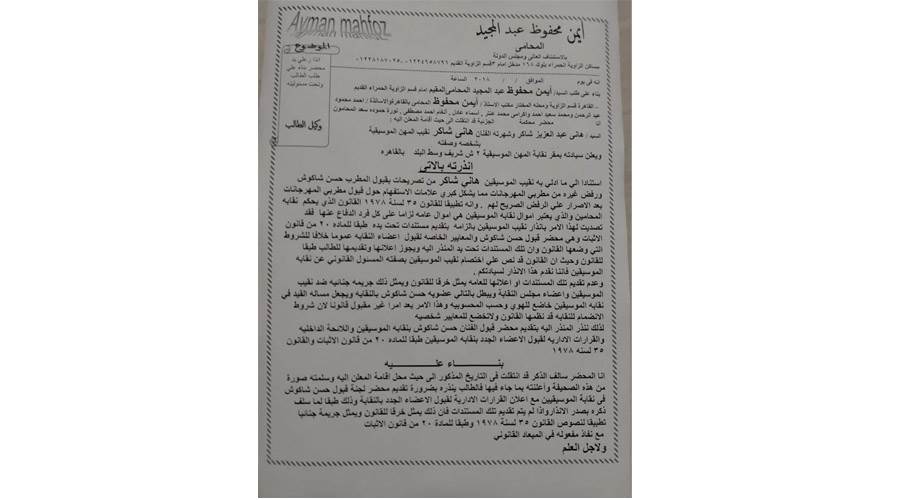 Ayman mahfoz
أيمن محفوظ عبد المجيد
المحامى
بالاستئناف العالى ومجلس الدولة
مساكن الزاوية الحمراء بلوك ١٦٨ مدخل امام قسم الزاوية القديم
الموضوع
بناء على
طلب الطالب
وتحت مسئوليته
وكيل الطالب
انه فى يوم الموافق / / ٢٠١٨ الساعة
بناء على طلب السيد/ أيمن محفوظ عبد المجيد المحامى المقيم امام قسم الزاوية الحمراء القديم
القاهرة قسم الزاوية ومحله المختار مكتب الاستاذ / أيمن محفوظ المحامى بالقاهرة والاساتذة / احمد محمود
عبد الرحمن ومحمد سعيد احمد واكرامى محمد عنتر , أسماء عادل , انغام احمد مصطفى , نورة حموده سعد المحامون
انا محضر محكمة الجزئية قد انتقلت الى حيث أقامة المعلن اليه :
السيد / هانى عبد العزيز شاكر وشهرته الفنان هانى شاكر نقيب المهن الموسيقية
بشخصه وصفته
ويعلن سيادته بمقر نقابة المهن الموسيقية ٢ ش شريف وسط البلد بالقاهره
انذرته بالاتى
استنادا الي ما ادلي به نقيب الموسيقين هاني شاكر من تصريحات بقبول المطرب حسن شاكوش
ورفض غيره من مطربي المهرجانات مما يشكل كبري علامات الاستفهام حول قبول مطربي المهرجانات
بعد الاصرار علي الرفض الصريح لهم . وانه تطبيقا للقانون ٣٥ لسنه ١٩٧٨ القانون الذي يحكم نقابه
المحامين والذي يعتبر اموال نقابه الموسيقين هي اموال عامه لزاما علي كل فرد الدفاع عنها فقد
تصديت لهذا الامر بانذار نقيب الموسيقين بالزامه بتقديم مستندات تحت يده طبقا للماده ٢٠ من قانون
الاثبات وهي محضر قبول حسن شاكوش والمعايير الخاصه لقبول اعضاء النقابه عموما خلافا للشروط
التي وضعها القانون وان تلك المستندات تحت يد المنذر اليه ويجوز اعلانها وتقديمها للطالب طبقا
للقانون وحيث ان القانون قد نص علي اختصام نقيب الموسيقين بصفته المسئول القانوني عن نقابه
الموسيقين فاننا نقدم هذا الانذار لسيادتكم .
وعدم تقديم تلك المستندات او اعلانها للعامه يمثل خرقا للقانون ويمثل ذلك جريمه جنائيه ضد نقيب
الموسيقين واعضاء مجلس النقابة ويبطل بالتالي عضويه حسن شاكوش بالنقابه ويجعل مساله القيد في
نقابه الموسيقين خاضع للهوي وحسب المحسوبيه وهذا الامر يعد امرا غير مقبول قانونا لان شروط
الانضمام للنقابه قد نظمها القانون ولاتخضع للمعايير شخصيه
لذلك ننذر المنذر اليه بتقديم محضر قبول الفنان حسن شاكوش بنقابه الموسيقين واللائحة الداخليه
والقرارات الاداريه لقبول الاعضاء الجدد بنقابه الموسيقين طبقا للماده ٢٠ من قانون الاثبات والقانون
٣٥ لسنه ١٩٧٨
بنـــــاء عليـــــه
انا المحضر سالف الذكر قد انتقلت في التاريخ المذكور الى حيث محل اقامة المعلن اليه وسلمته صورة
من هذه الصحيفة واعلنته بما جاء فيها فالطالب ينذره بضرورة تقديم محضر لجنة قبول حسن شاكوش
فى نقابة الموسيقيين مع اعلان القرارات الادارية لقبول الاعضاء الجدد بالنقابة وذلك طبقا لما سلف
ذكره بصدر الانذار واذا لم يتم تقديم تلك المستندات فان ذلك يمثل خرقا للقانون ويمثل جريمة جنائيا
تطبيقا لنصوص القانون ٣٥ لسنه ١٩٧٨ وطبقا للمادة ٢٠ من قانون الاثبات
مع نفاذ مفعوله في الميعاد القانوني
ولاجل العلم